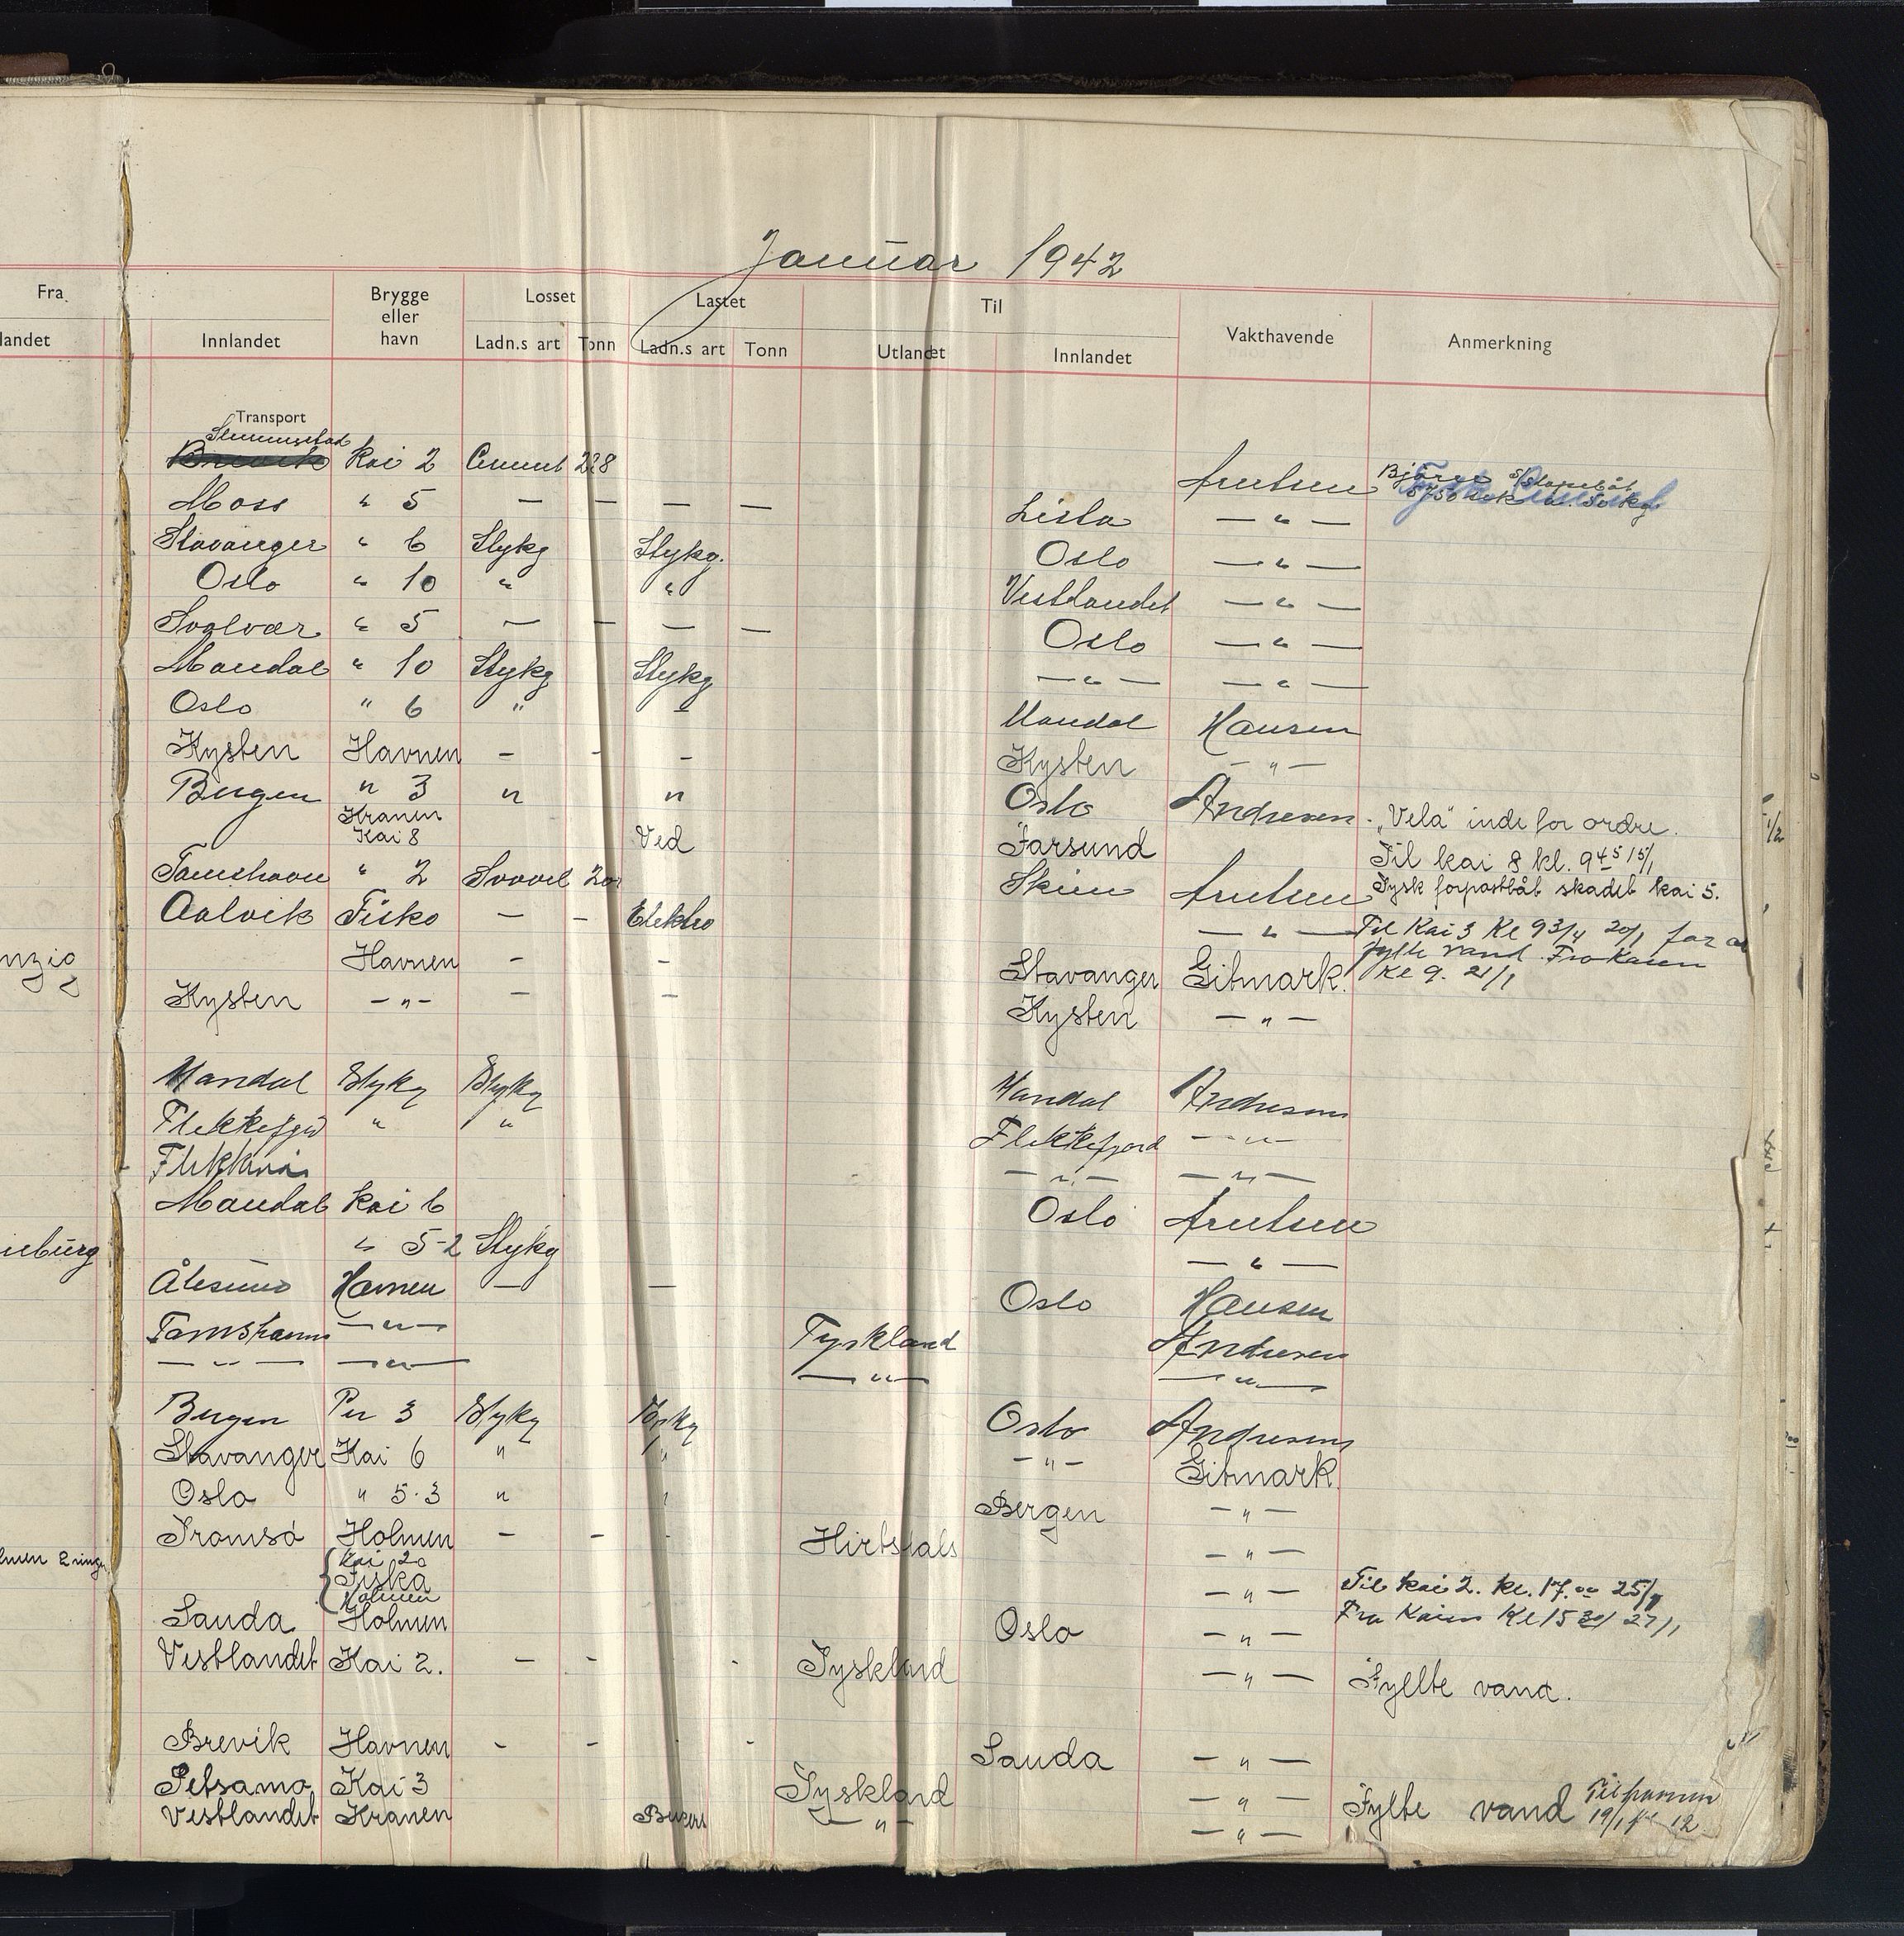 Januar 1942
Fra Brygge eller havn Losset Lastet Til Vakthavende Anmerkning
landet Innlandet Ladn.s art Tonn Ladn.s art Tonn Utlandet Innlandet
Transport
Slemmestad
Brevik Kai 2 Cement 228 Arntsen
Moss " 5 — — — — Lista — " —
Stavanger " 6 Stykg Stykg. Oslo — " —
Oslo " 10 " " Vestlandet — " —
Svolvær " 5 — — — — Oslo — " —
Mandal " 10 Stykg Stykg — " — — " —
Oslo " 6 " " Mandal Hansen
Kysten Havnen - - - Kysten — " —
Bergen " 3 " " Oslo Andresen - „Vela" inde for ordre.
Kranen
Kai 8 Ved Farsund Til kai 8 kl. 9 45 15/1
Tamshavn " 2 Svovel 20 Skien Arntsen Tysk forpostbåt skadet kai 5.
Aalvik Fisko — - Elektro — " — Til Kai 3 Kl 9 3/4 20/1 for a
nzig Havnen - - Stavanger Gitmark. fylle vand. Fra Kaien
Kl 9. 21/1
Kysten — " — - - Kysten — " —
Mandal Stykg Stykg Mandal Andresen
Flekkefjord " " Flekkefjord — " —
— " — — " —
Mandal Kai 6 Oslo Arntsen
eburg " 5-2 Stykg — " —
Ålesund Havnen — — Oslo Hansen
Tamshavn — " — Tyskland Andresen
— " — — " — — " — — " —
Bergen 3 Stykg Stykg Oslo Andresen
Stavanger Kai 6 " " — " — Gitmark.
Oslo " 5-3 " " Bergen — " —
Tromsø Holmen - - - Hirtshals — " —
Kai 20
Fiska — " — Til kai 2. kl. 17.00 25/1
Holmen Fra Kaien Kl 15 30 27/1
Sauda Holmen Oslo — " —
Vestlandet Kai 2. - - - Tyskland — " — Fyllte vand.
Brevik Havnen - - - - Sauda — " —
Petsamo Kai 3 Tyskland — " — Fylte vand Til havnen
Vestlandet Kranen Bunkers — " — — " — 19/1 kl 12